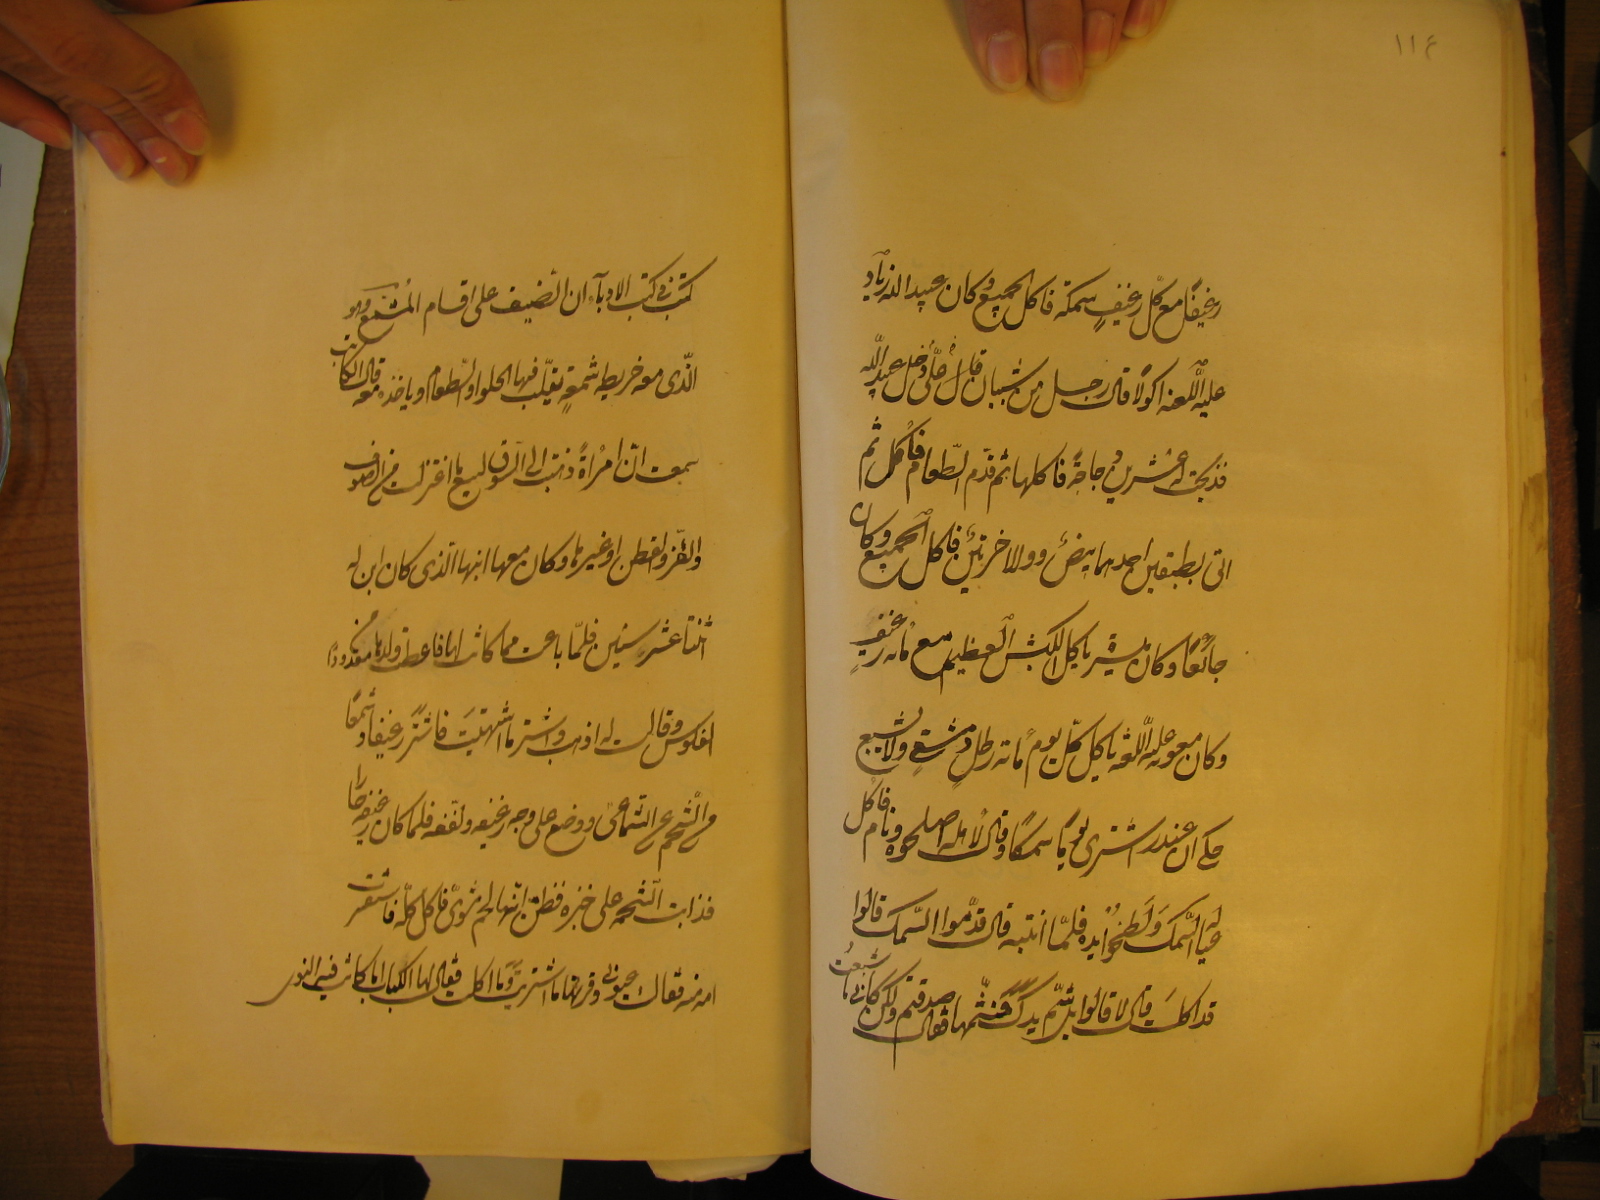 ١١٤
رغيفا مع كل رغيف سمكة فاكل الجميع وكان عبيد الله زياد
عليه اللعنه اكولا قال رجل من شيبان دخل عبيد الله
فذبحت له عشرين دجاجة فاكلها ثم قدم الطعام فاكل ثم
اتى بطبقين احدهما بيض والاخر تين فاكل الجميع وكان
جائعا وكان ياكل الكبش العظيم مع مائة رغيف
وكان معويه عليه اللعنة ياكل كل يوم مائة رطل دمشقي ولا يشبع
حكي ان اشترى يوما سمكا وقال لاهله اصلحوه ونام فاكل
عياله السمك ولطخوا يده فلما انتبه قال قدموا السمك قالوا
قد اكلت قال لا قالوا بلى شم يدك فشمها فقال صدقتم ولكن كاني ما شبعت
كتب في كتب الادباء ان الضيف على اقسام المشمع وهو
الذى معه خريطه شمعة يقلب فيها الحلوا والطعام وياخذه معه قال الكاتب
سمعت ان امراة ذهبت الى السوق لتبيع ما اغزلت من الصوف
والقز والقطن او غيرها وكان معها ابنها الذى كان ابن له
اثنتا عشر سنين فلما باعت مما كانت لها فاعطت ولدها معدودا
افلوس وقالت له اذهب واشتر ما اشتهيت فاشترى رغيفا وشمعا
من الشمعى ووضع على وجه رغيفه ولففه فلما كان رغيفه حارا
فذابت الشمعه على خبزه فظن انها لحم شوى فاكل كله فاستخبرت
امه منه فقالت وقرتها ما اشتريت وما اكلت فقال لها الكباب اما كانت فيه النوى